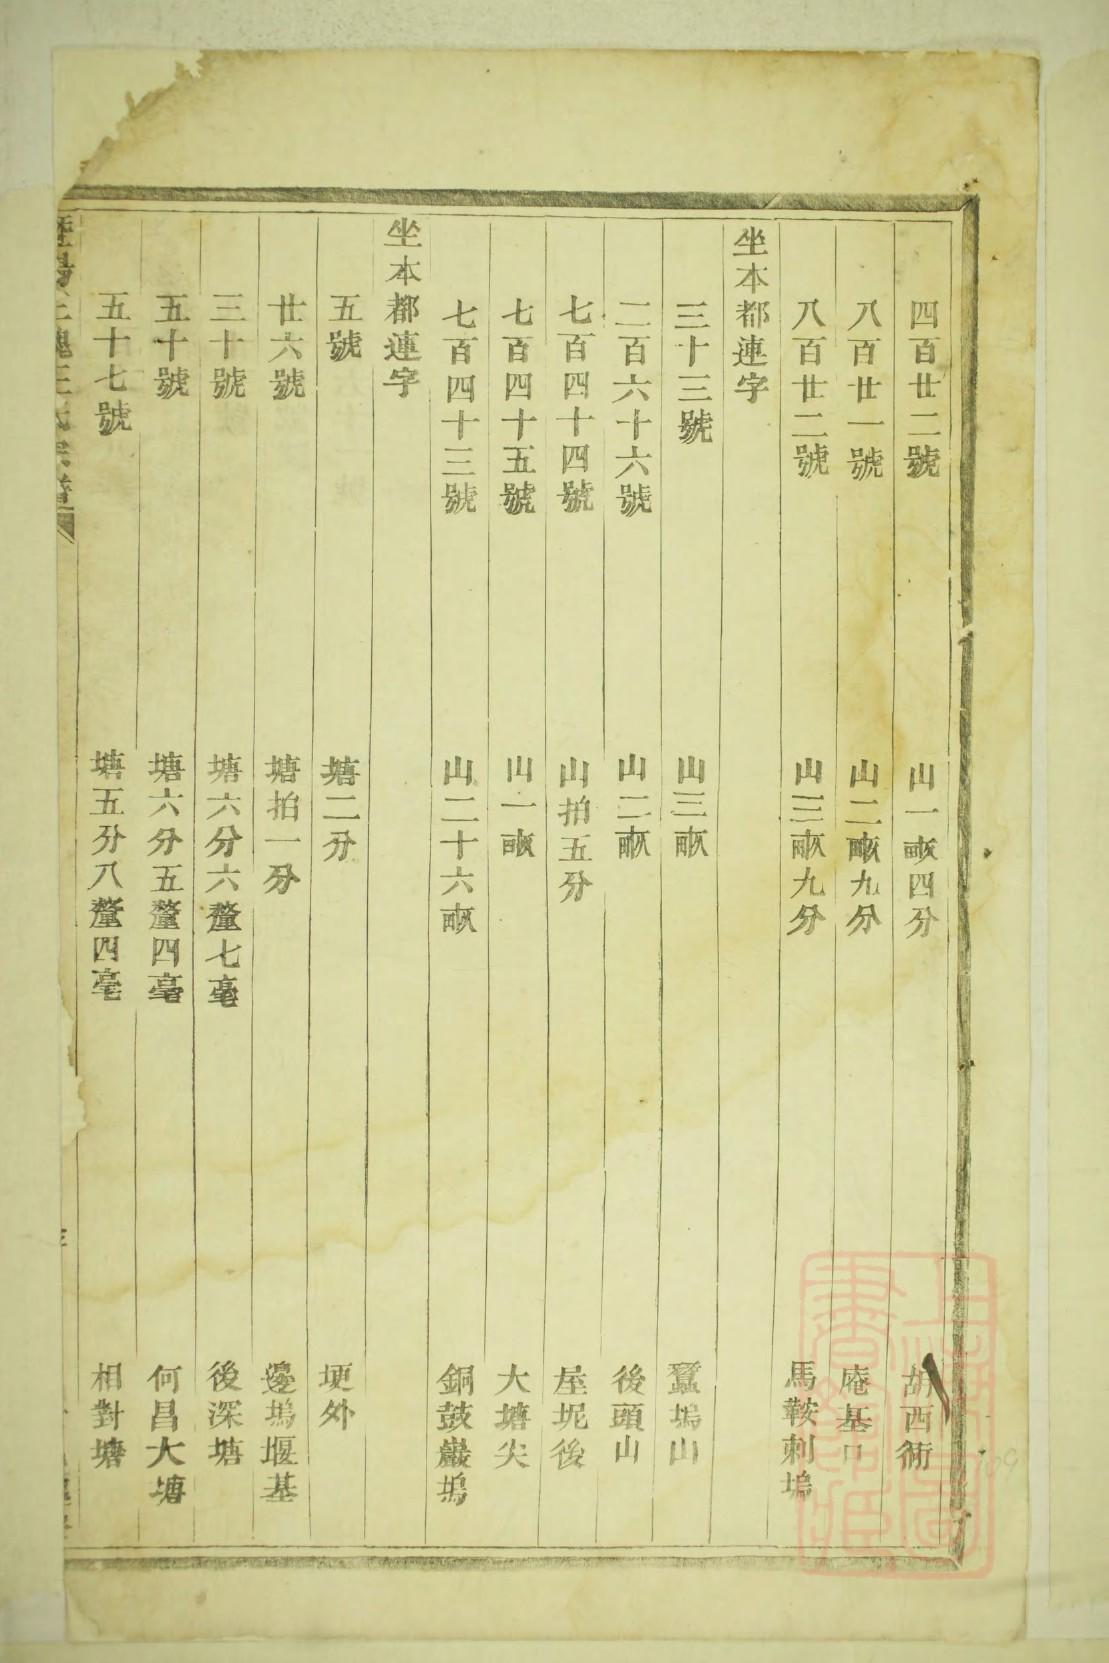 四百廿二號 山一畝四分 胡西衕
八百廿一號 山二畝九分 庵基口
八百廿二號 山三畝九分 馬鞍刺塢
坐本都連字
三十三號 山三畝 蠶塢山
二百六十六號 山二畝 後頭山
七百四十四號 山拍五分 屋坭後
七百四十五號 山一畝 大塘尖
七百四十三號 山二十六畝 銅鼓巖塢
坐本都連字
五號 塘二分 埂外
廿六號 塘拍一分 邊塢堰基
三十號 塘六分六釐七毫 後深塘
五十號 塘六分五釐四毫 何昌大塘
五十七號 塘五分八釐四毫 相對塘